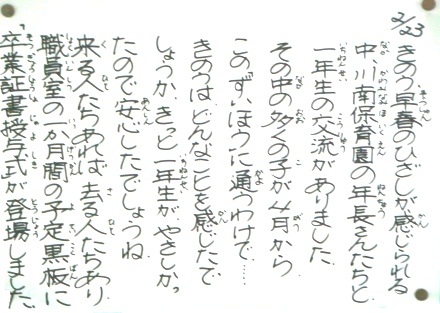 2/23
きのう、早春のひざしが感じられる
中、川南保育園の年長さんたちと
一年生の交流がありました。
その中の多くの子が4月から
この「ずいほう」に通うわけで……
きのうは、どんなことを感じたで
しょうか。きっと一年生がやさしかっ
たので安心したでしょうね。
来る人たちあれば、去る人たちあり
職員室の一か月間の予定黒板に
「卒業証書授与式が登場しました。